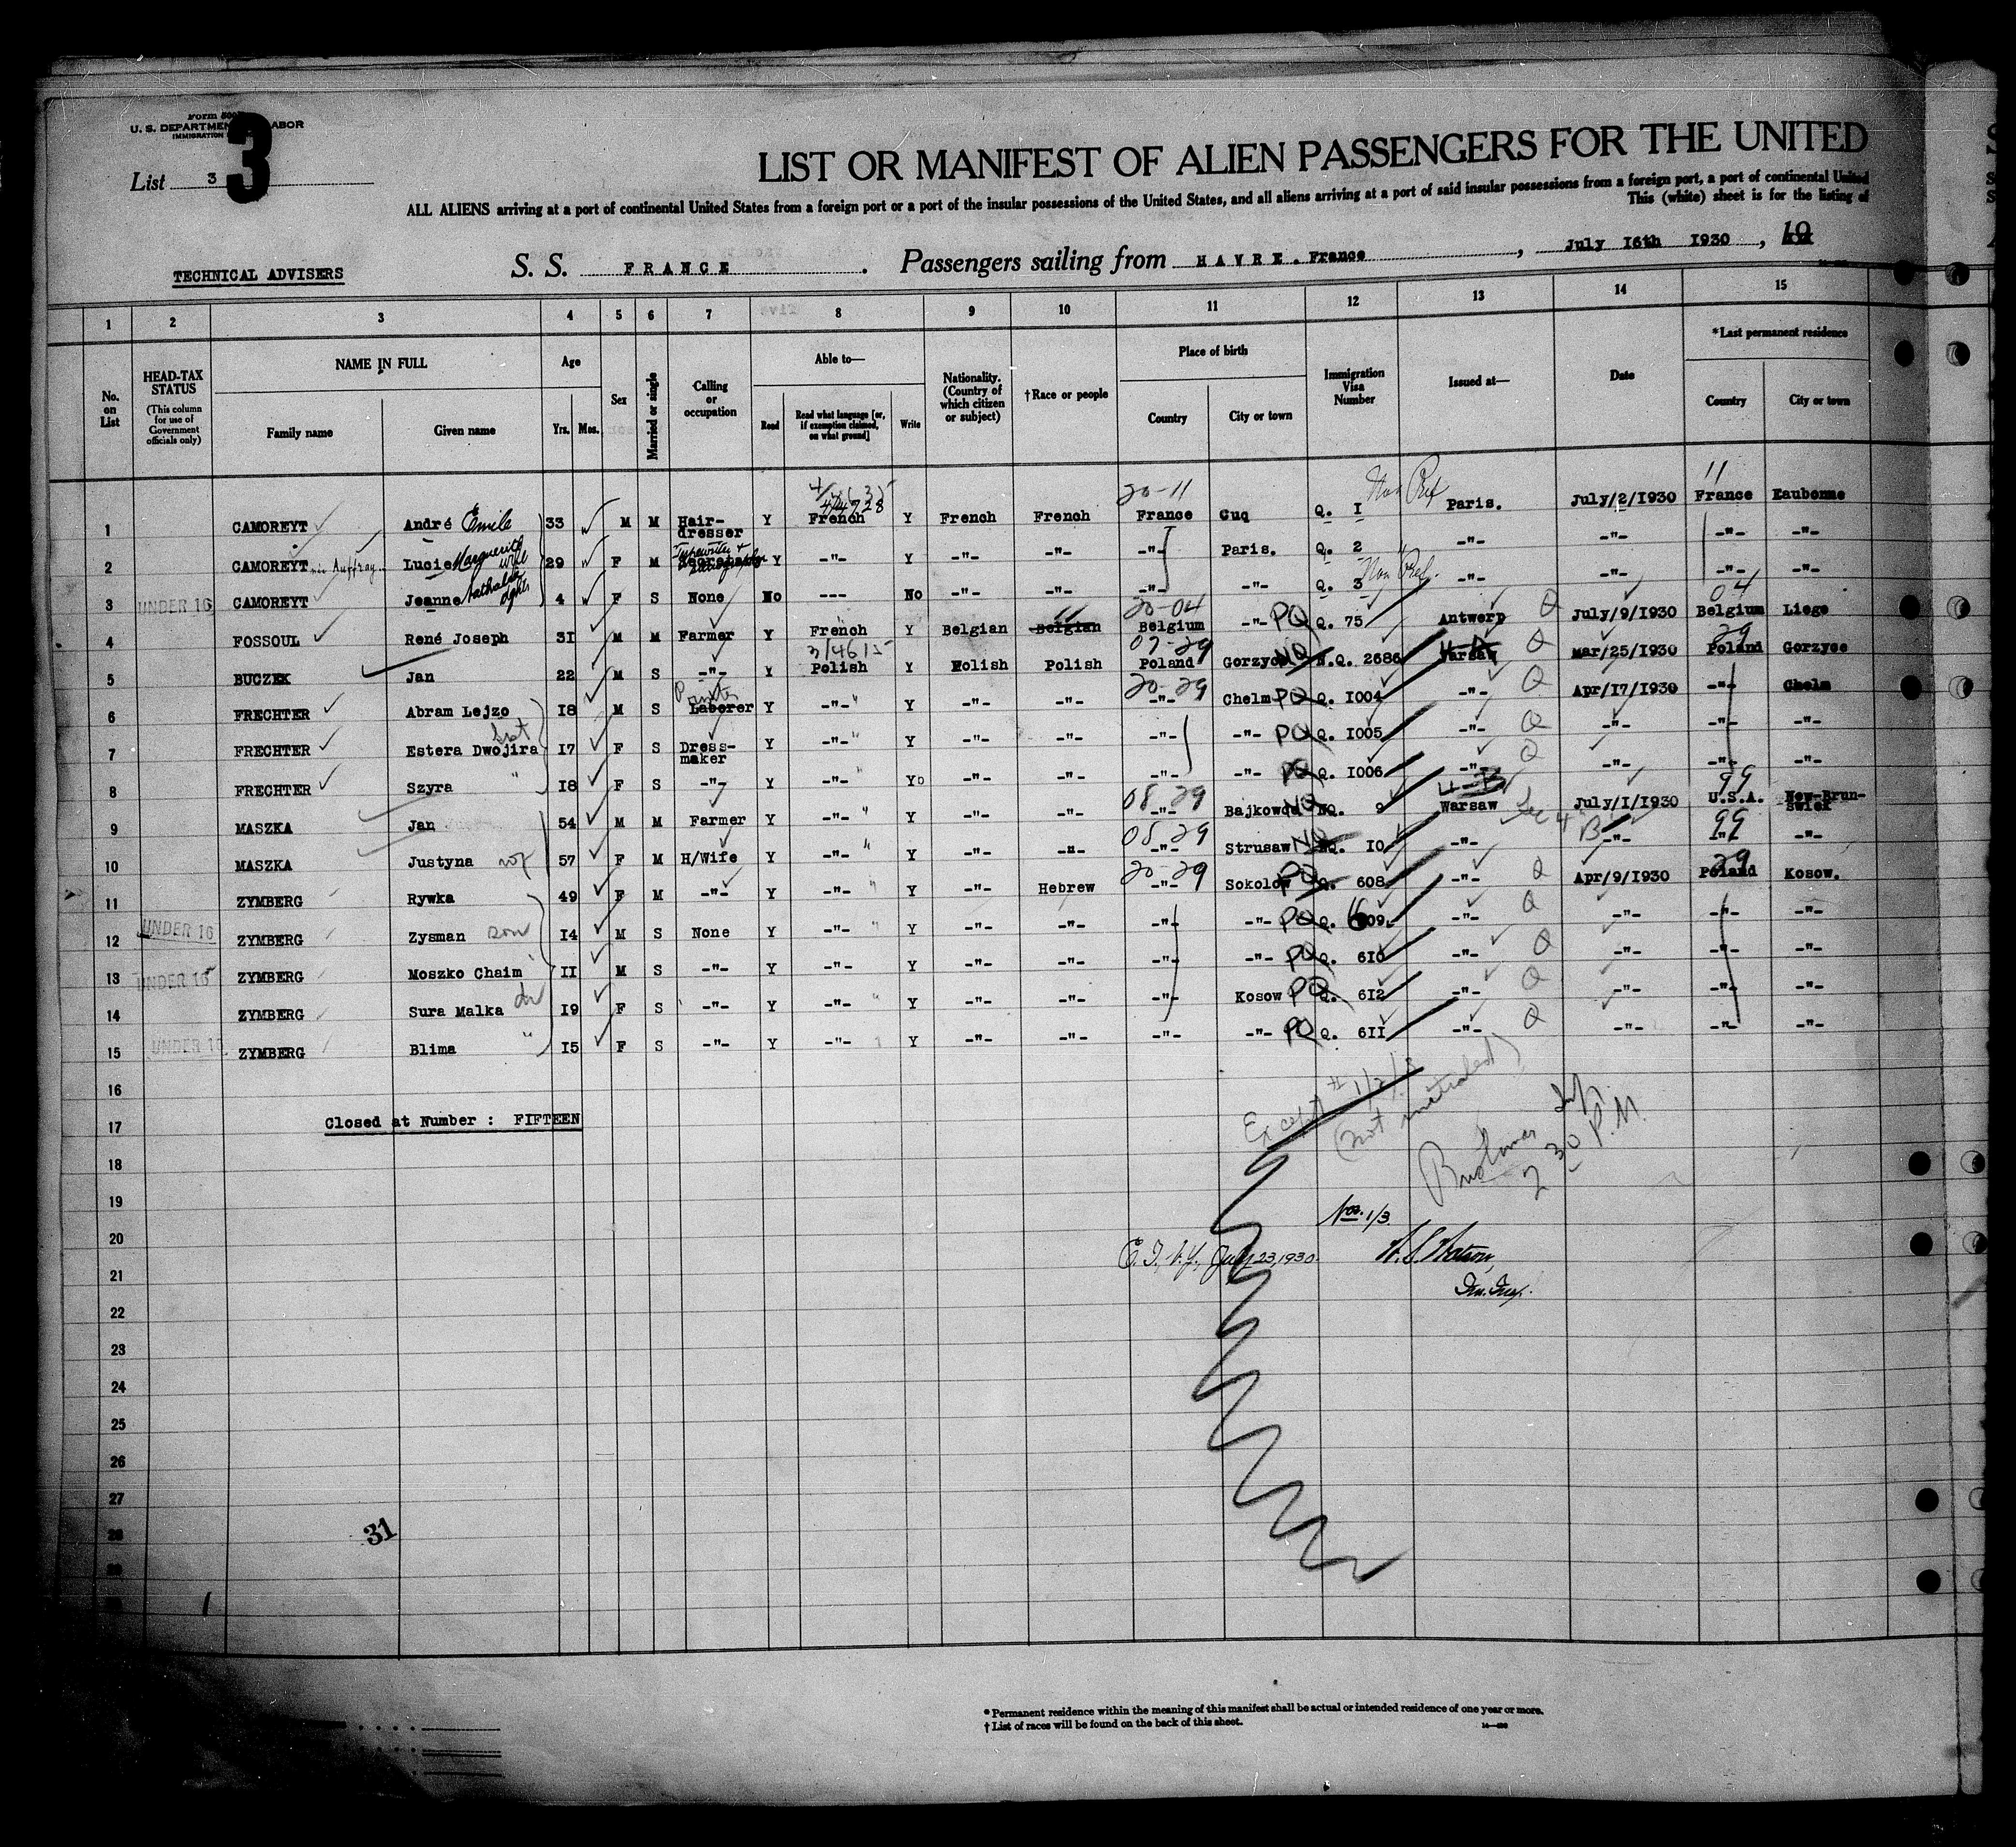 Form 500
U. S. DEPARTMENT LABOR
IMMIGRATION
3
List 3
LIST OR MANIFEST OF ALIEN PASSENGERS FOR THE UNITED
ALL ALIENS arriving at a port of continental United States from a foreign port or a port of the insular possessions of the United States, and all aliens arriving at a port of said insular possessions from a foreign port, a port of continental United
This (white) sheet is for the listing of
TECHNICAL ADVISERS
S. S. FRANCE . Passengers sailing from HAVRE. France , July 16th 1930 , 19
1 2 3 4 5 6 7 8 9 10 11 12 13 14 15
No. on List
HEAD-TAX STATUS
(This column for use of Government officials only)
NAME IN FULL
Family name Given name
Age
Yrs. Mos.
Sex
Married or single
Calling or occupation
Able to—
Read
Read what language [or, if exemption claimed, on what ground]
Write
Nationality. (Country of which citizen or subject)
†Race or people
Place of birth
Country City or town
Immigration Visa Number
Issued at—
Date
*Last permanent residence
Country City or town
1 CAMOREYT André Emile 33 M M Hair-dresser Y French Y French French 20-11 France Cuq Q. I Non Pref Paris. July/2/1930 11 France Eaubonne
2 CAMOREYT née Auffray Lucie Marguerite wife 29 F M Typewriter + Y -"- Y -"- -"- -"- Paris. Q. 2 -"- -"- -"- -"-
3 UNDER 16 CAMOREYT Jeanne Nathalie dghtr 4 F S None No --- No -"- -"- -"- -"- Q. 3 Non Pref. -"- -"- -"- -"-
4 FOSSOUL René Joseph 3I M M Farmer Y French Y Belgian Belgian 20-04 Belgium -"- PQ Q. 75 Antwerp Q July/9/1930 04 Belgium Liege
5 BUCZEK Jan 22 M S -"- Y 3/4615 Polish Y Polish Polish 07-29 Poland Gorzyce NQ N.Q. 2686 Warsaw Q Mar/25/1930 29 Poland Gorzyce
6 FRECHTER Abram Lejzo I8 M S Painter Laborer Y -"- Y -"- -"- 20-29 -"- Chelm PQ Q. I004 -"- Q Apr/17/1930 -"- Chelm
7 FRECHTER Estera Dwojira sist I7 F S Dress-maker Y -"- Y -"- -"- -"- -"- PQ Q. I005 -"- Q -"- -"- -"-
8 FRECHTER Szyra " I8 F S -"- Y -"- Y -"- -"- -"- -"- PQ Q. I006 -"- Q -"- -"- -"-
9 MASZKA Jan 54 M M Farmer Y -"- Y -"- -"- 08 29 -"- Bajkowda NQ NQ. 9 Warsaw Sec 4 July/I/1930 99 U.S.A. New-Brun-swick
10 MASZKA Justyna wf 57 F M H/Wife Y -"- Y -"- -"- 08-29 -"- Strusaw NQ NQ. IO -"- B -"- 99 -"- -"-
11 ZYMBERG Rywka 49 F M -"- Y -"- Y -"- Hebrew 20-29 -"- Sokolow PQ Q. 608 -"- Q Apr/9/1930 29 Poland Kosow.
12 UNDER 16 ZYMBERG Zysman son I4 M S None Y -"- Y -"- -"- -"- -"- PQ Q. 609 -"- Q -"- -"- -"-
13 UNDER 16 ZYMBERG Moszko Chaim II M S -"- Y -"- Y -"- -"- -"- -"- PQ Q. 6I0 -"- Q -"- -"- -"-
14 ZYMBERG Sura Malka da I9 F S -"- Y -"- Y -"- -"- -"- Kosow PQ Q. 6I2 -"- Q -"- -"- -"-
15 UNDER 16 ZYMBERG Blima " I5 F S -"- Y -"- Y -"- -"- -"- -"- PQ Q. 6II -"- Q -"- -"- -"-
16
17 Closed at Number : FIFTEEN
Except # 1/2/3
(not
2 30 P.M.
18
19
Nos. 1/3.
20
E. I., N.Y., July 23, 1930.
21
Imm. Insp.
22
23
24
25
26
27
28
29
30
31
* Permanent residence within the meaning of this manifest shall be actual or intended residence of one year or more.
† List of races will be found on the back of this sheet.